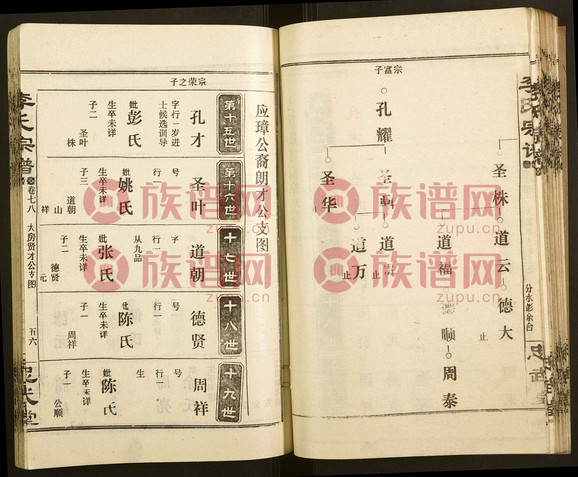 李氏宗谱
分水彭象台
宗富子
孔耀
圣株 道云 德大
止
道福 德顺 周泰
道万
止
圣华
应璋公裔朗才公支图
宗荣之子
第十五世
孔才
字行一岁进
士候选训导
妣彭氏
生卒未详
子二
圣叶
株
第十六世
圣叶
行一
妣姚氏
生卒未详
子三
道朝
山
祥
十七世
道朝
行一
从九品
妣张氏
生卒未详
子二
德贤
元
十八世
德贤
号
行一
妣陈氏
生卒未详
子一
周祥
十九世
周祥
号
行一
生
妣陈氏
生卒未详
子一
公顺
李氏宗谱
卷七八
大房贤才公支图
五六
族谱网
zupu.cn